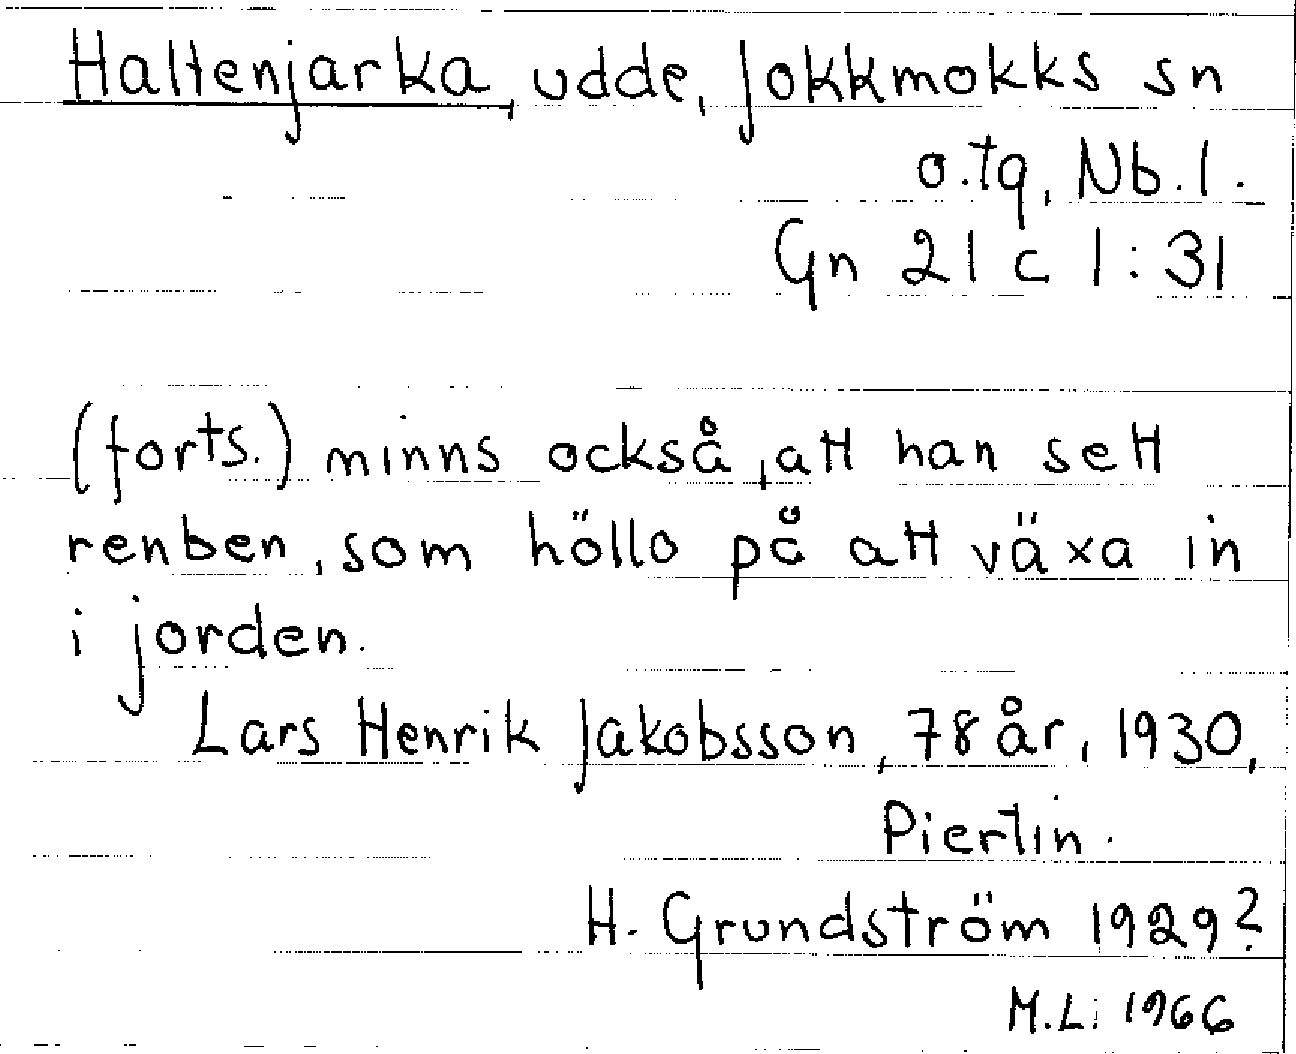 Haltenjarka, udde, Jokkmokks sn
o.tg, Nb.l.
Gn 21 c 1:31
(forts.) minns också, att han sett
renben, som höllo på att växa in
i jorden.
Lars Henrik Jakobsson, 78 år, 1930,
Piertin.
H. Grundström 1929?
M.Li 1966